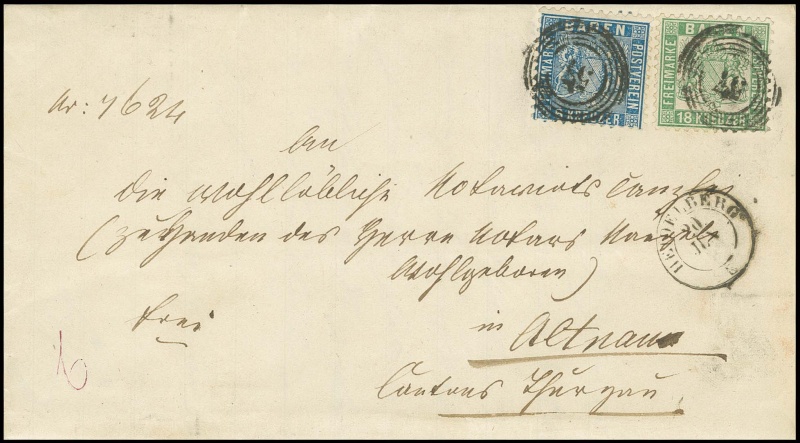 BADEN
FREIMARKE
POSTVEREIN
KREUZER
BADEN
FREIMARKE
18 KREUZER
Nr: 7624
An
die wohllöbliche Notariats Canzlei
(zu Handen des Herrn Notars
Wohlgeboren)
HEIDELBERG
frei
in Altnau
Cantons Thurgau.